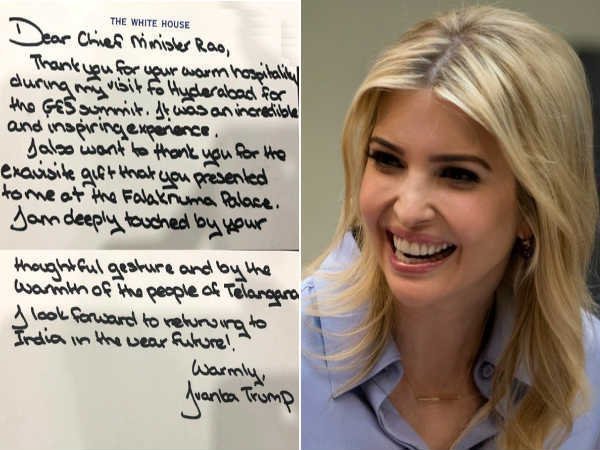 THE WHITE HOUSE
Dear Chief Minister Rao,
Thank you for your warm hospitality
during my visit to Hyderabad for
the GES summit. It was an incredible
and inspiring experience.
I also want to thank you for the
exquisite gift that you presented
to me at the Falaknuma Palace.
I am deeply touched by your
thoughtful gesture and by the
warmth of the people of Telangana
I look forward to returning to
India in the near future!
Warmly,
Ivanka Trump